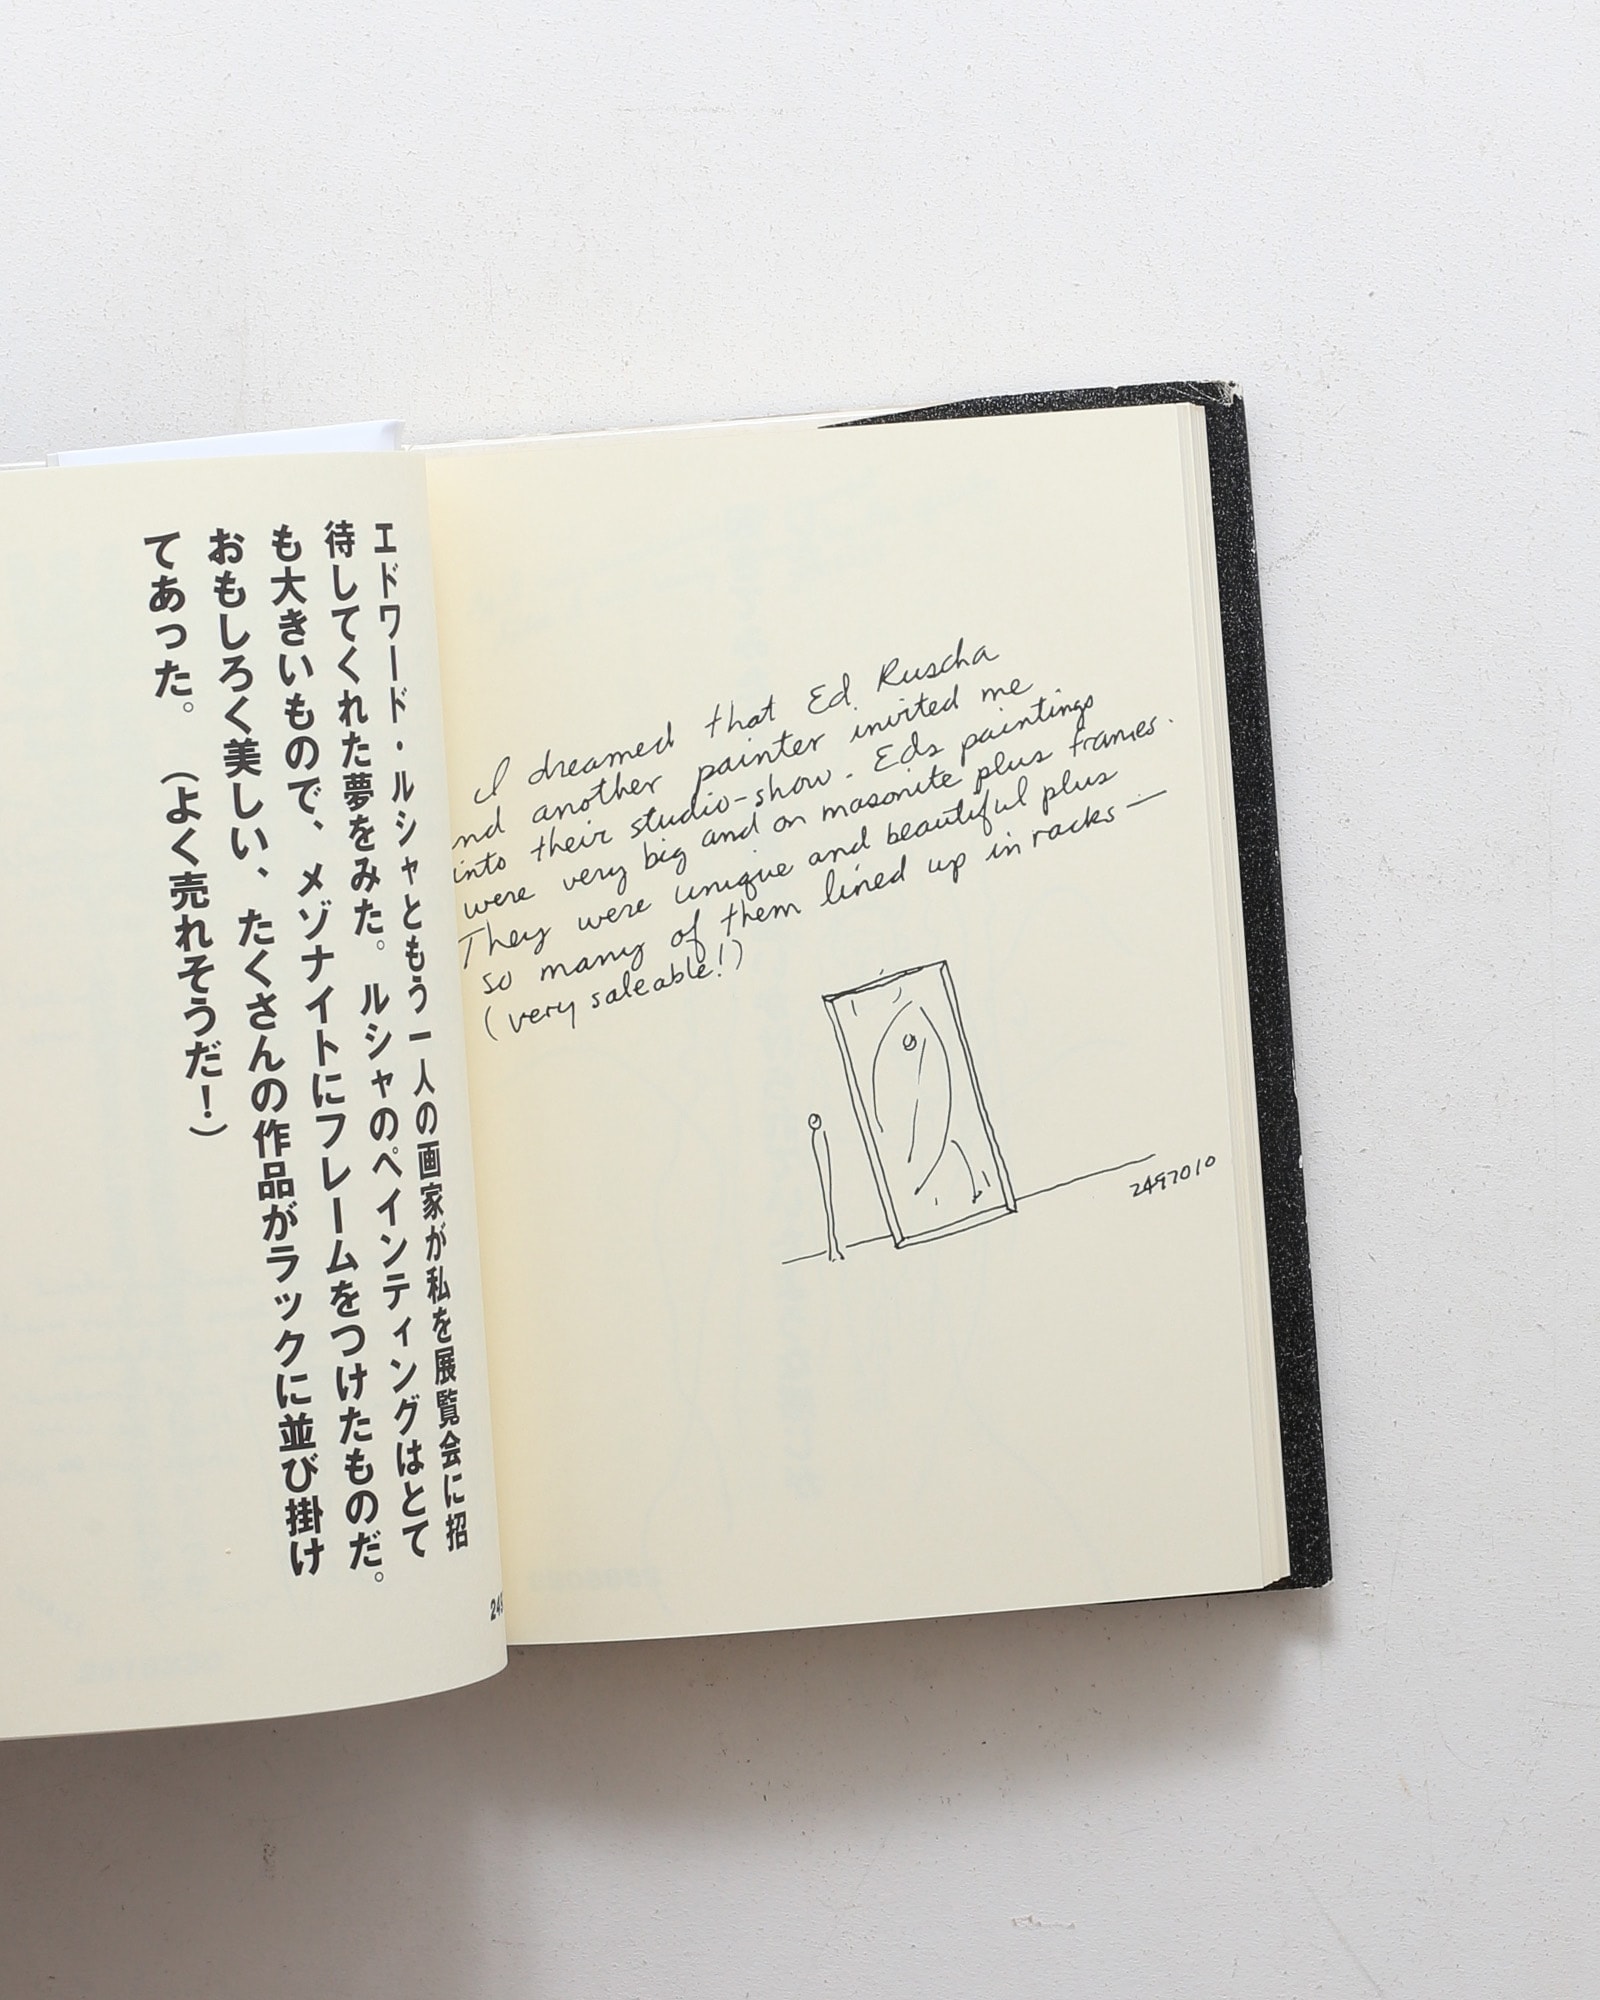 エドワード・ルシャともう一人の画家が私を展覧会に招
待してくれた夢をみた。ルシャのペインティングはとて
も大きいもので、メゾナイトにフレームをつけたものだ。
おもしろく美しい、たくさんの作品がラックに並び掛け
てあった。（よく売れそうだ！）
I dreamed that Ed Ruscha
and another painter invited me
into their studio-show. Eds paintings
were very big and on masonite plus frames.
They were unique and beautiful plus
so many of them lined up in racks—
(very saleable!)
2497010